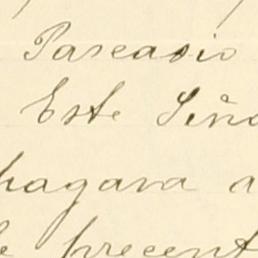 Pascasio
Este Seño
hagava a
e precent